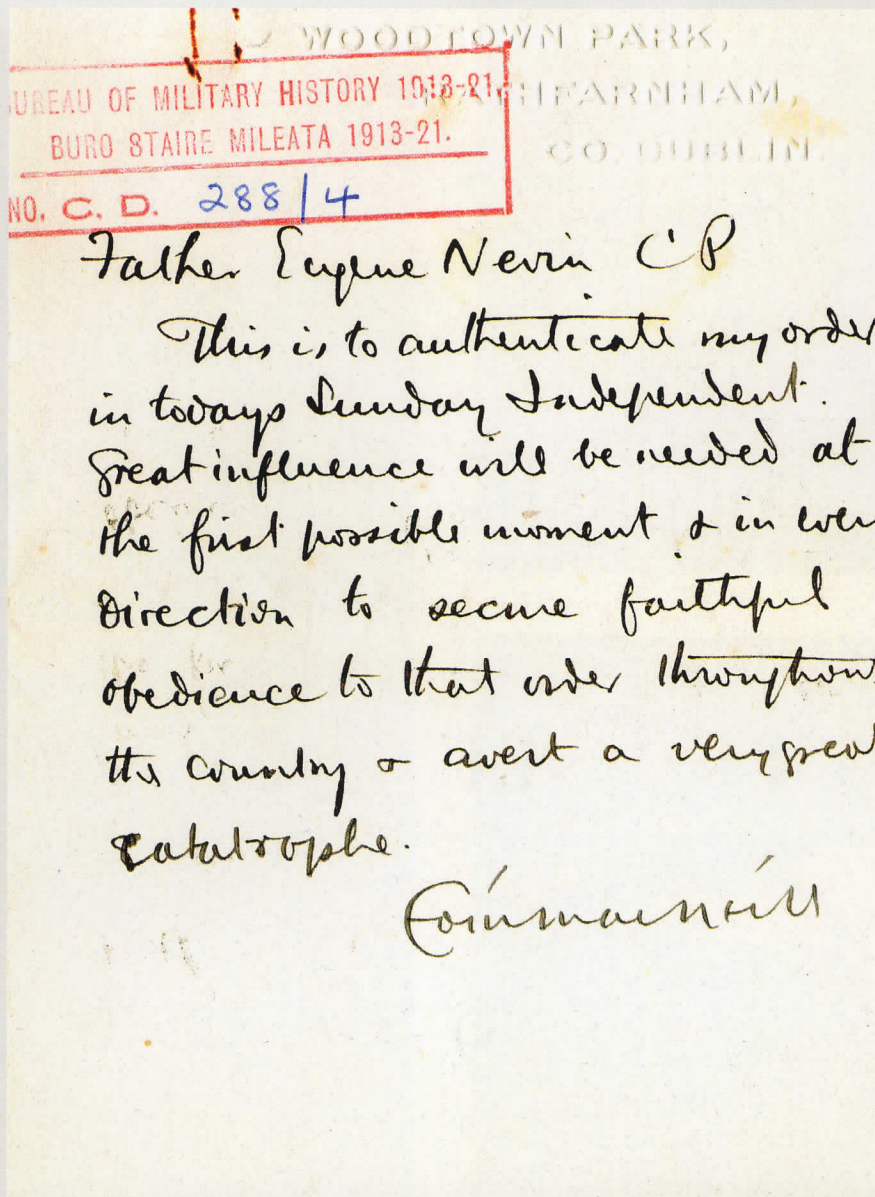 WOODTOWN PARK,
RATHFARNHAM,
CO. DUBLIN.
BUREAU OF MILITARY HISTORY 1913-21.
BURO STAIRE MILEATA 1913-21.
NO. C. D. 288/4
Father Eugene Nevin CP
This is to authenticate my order
in todays Sunday Independent.
Great influence will be needed at
the first possible moment & in ever
direction to secure faithful
obedience to that order throughout
the country & avert a very great
catatrophe.
Eoin mac néill